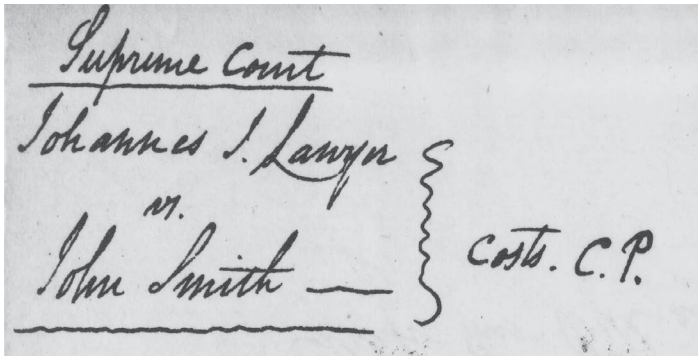 Supreme Court
Johannes I. Lawyer
vs.
John Smith —
Costs. C.P.